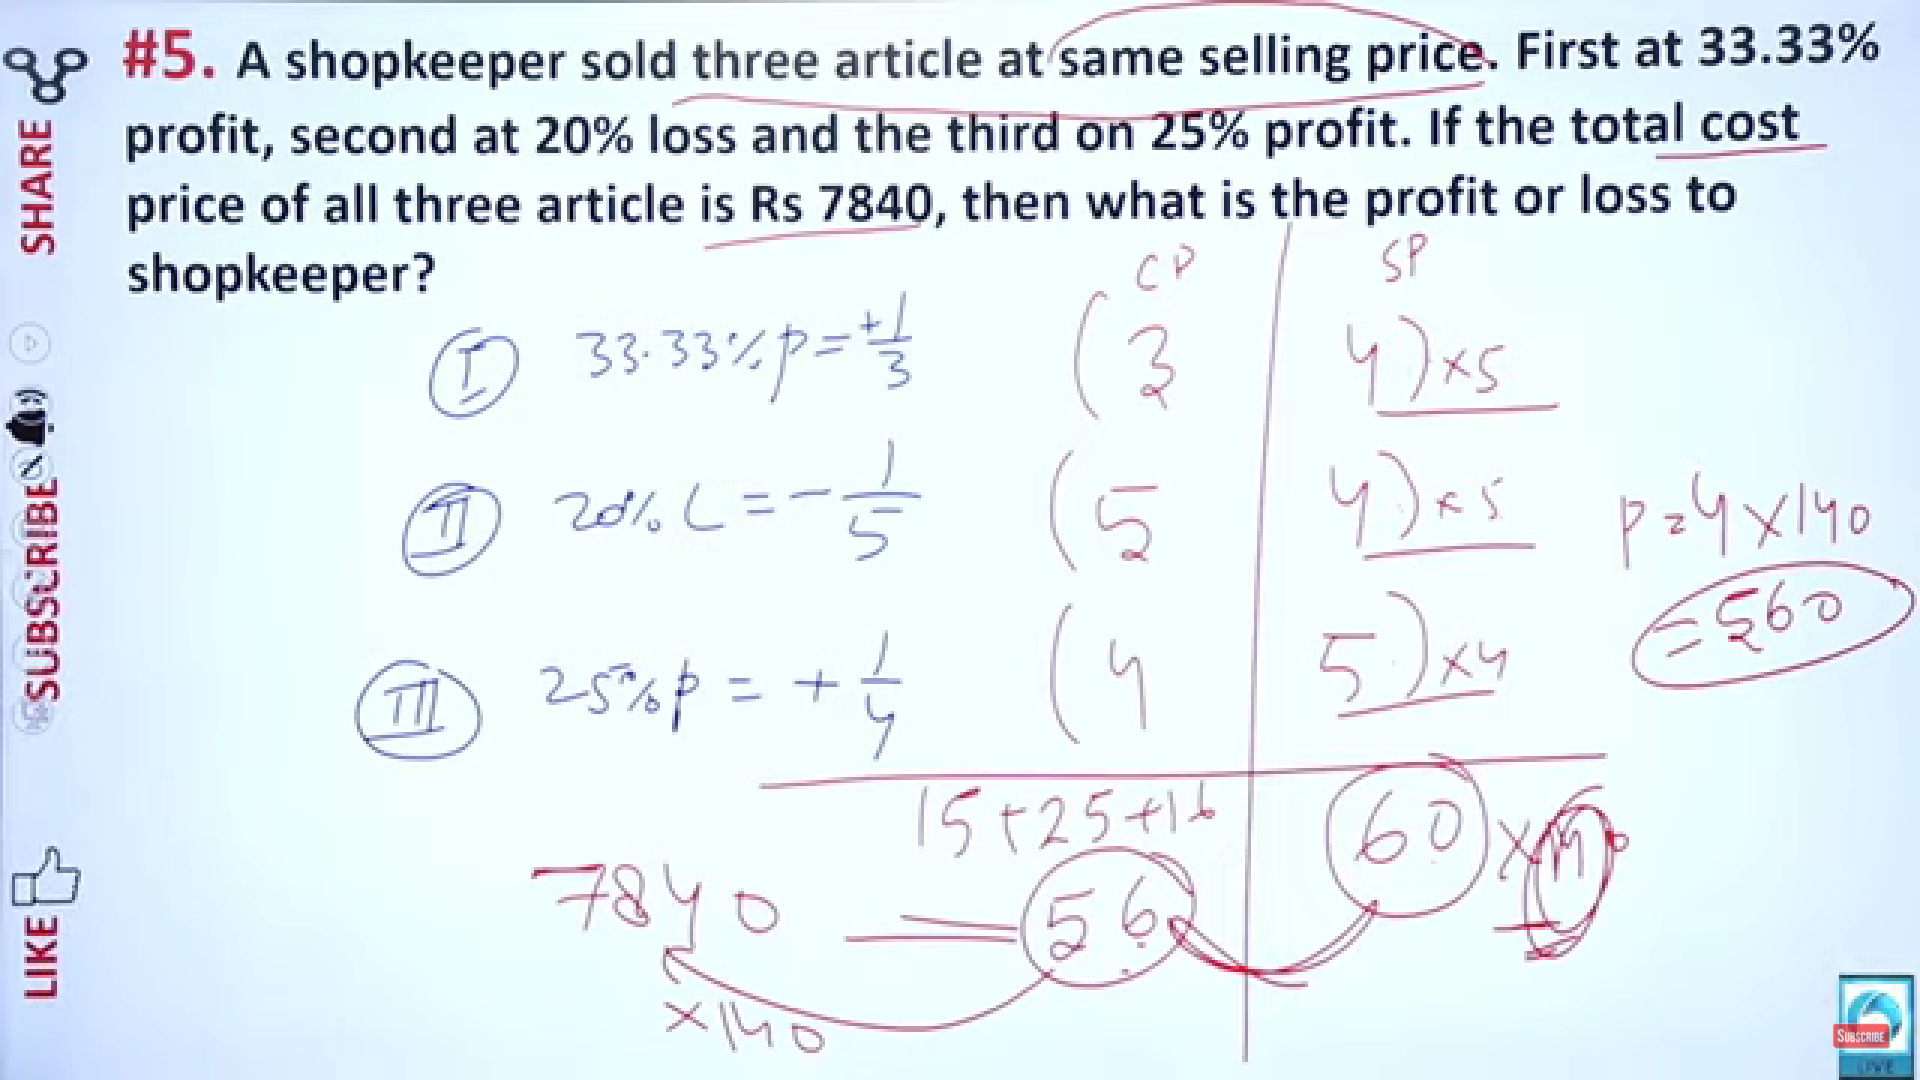 #5. A shopkeeper sold three article at same selling price. First at 33.33%
profit, second at 20% loss and the third on 25% profit. If the total cost
price of all three article is Rs 7840, then what is the profit or loss to
shopkeeper?
CP SP
I 33.33% p = +1/3 (3 4) ×5
II 20% L = -1/5 (5 4) ×5
P = 4 × 140
= 560
III 25% p = +1/4 (4 5) ×4
15+25+16 60 × 140
7840 = 56
×140
SHARE
SUBSCRIBE
LIKE
SUBSCRIBE
LIVE